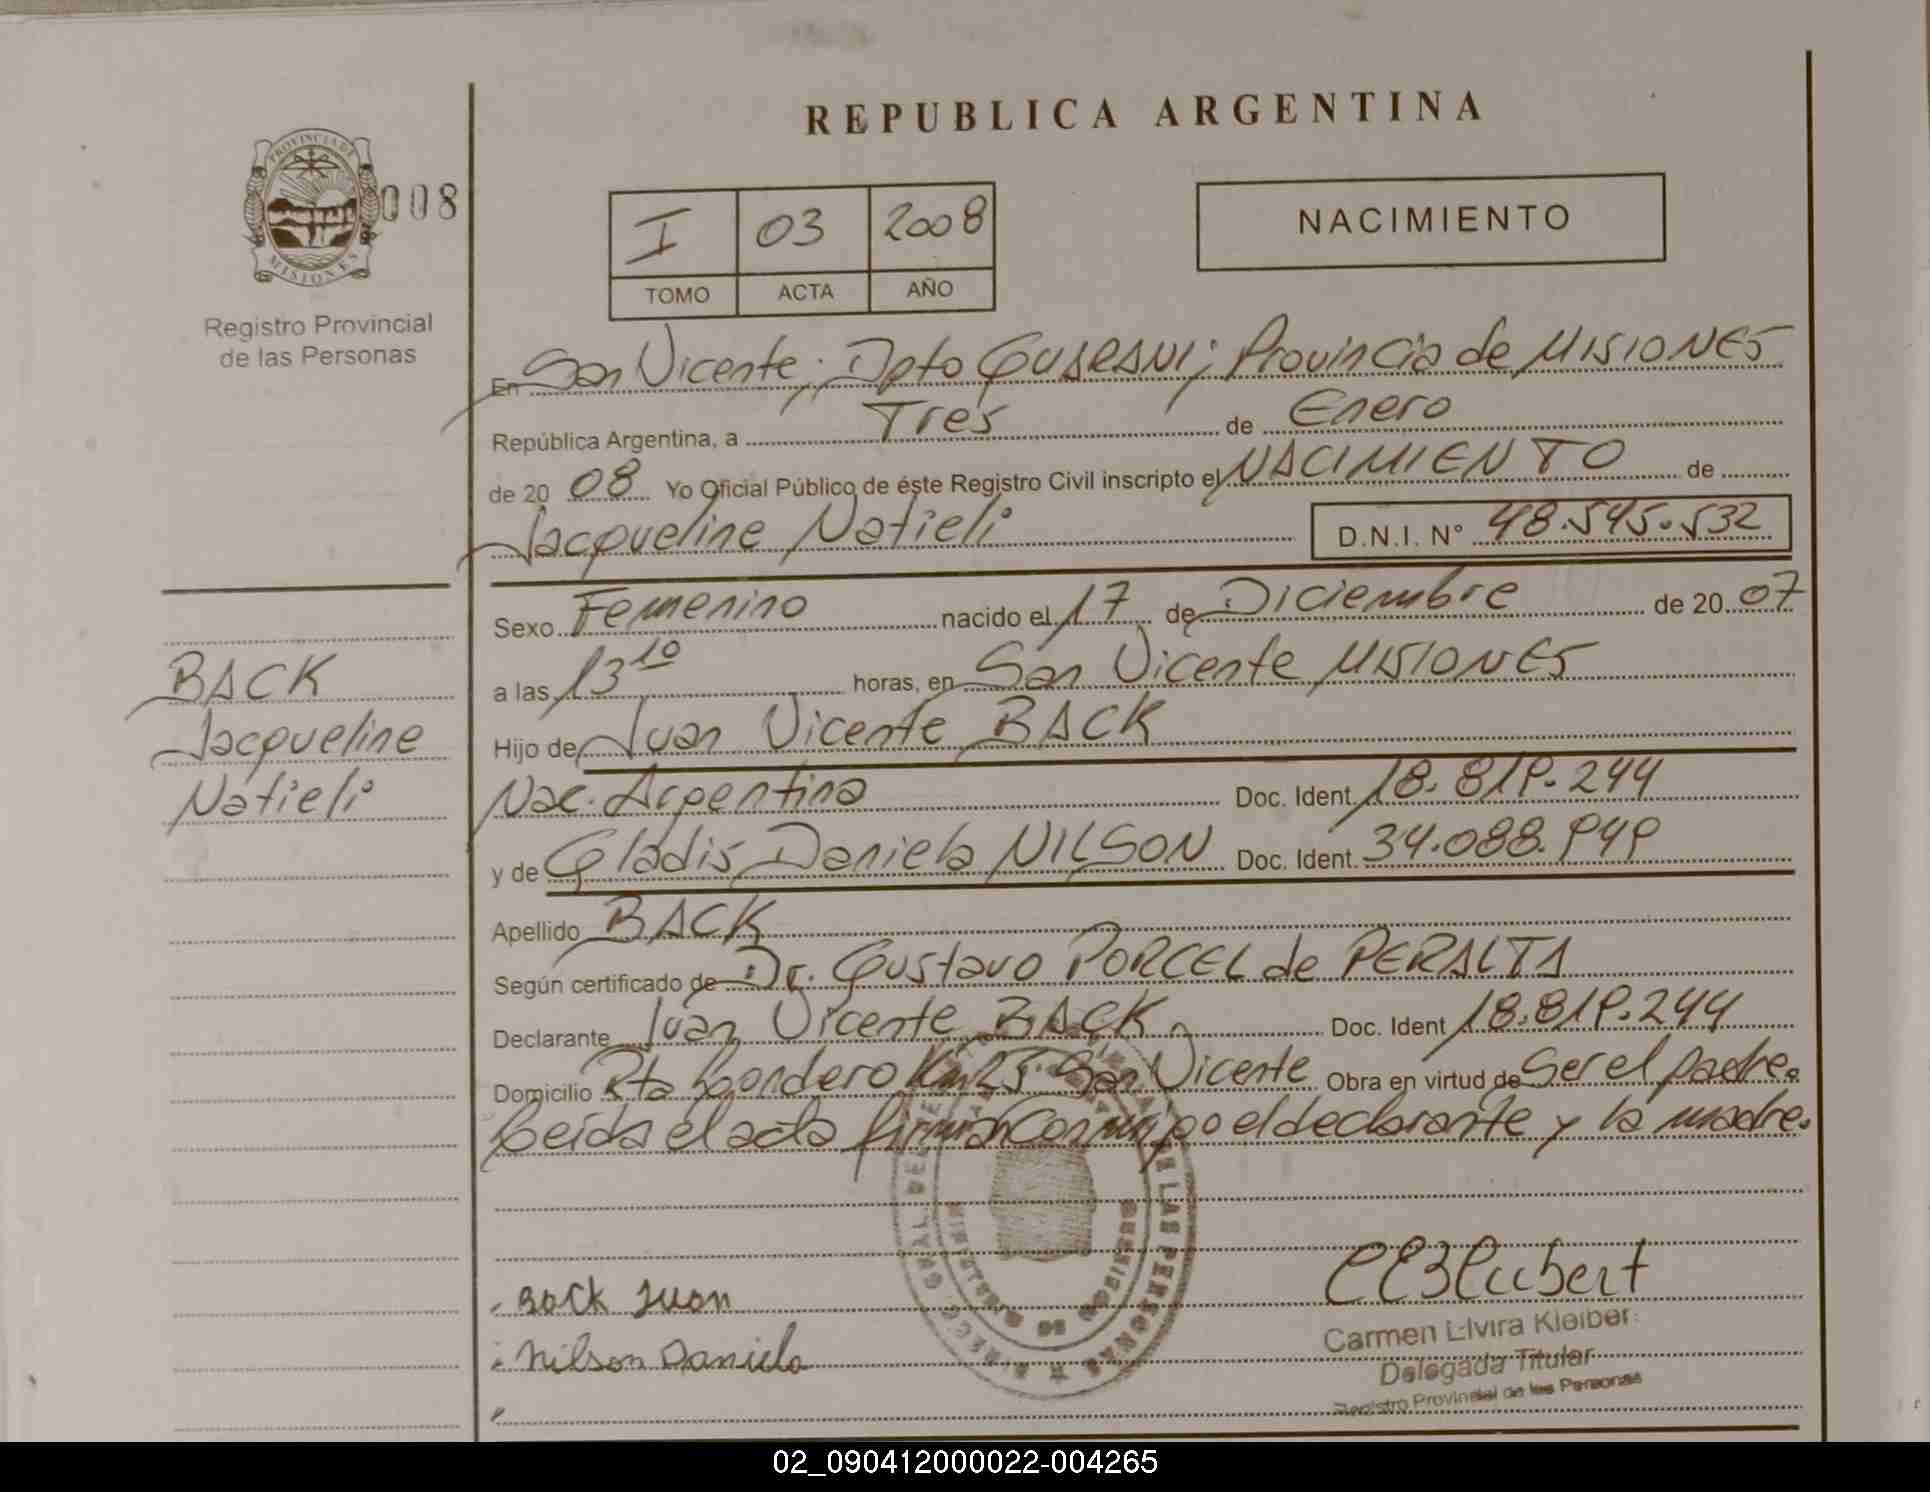 REPUBLICA ARGENTINA
PROVINCIA DE
MISIONES
008
Registro Provincial
de las Personas
I 03 2008
TOMO ACTA AÑO
NACIMIENTO
En San Vicente; Dpto GUARANI; Provincia de MISIONES
República Argentina, a Tres de Enero
de 20 08 Yo Oficial Público de éste Registro Civil inscripto el NACIMIENTO de
Jacqueline Natieli D.N.I. N° 48.545.532
Sexo Femenino nacido el 17 de Diciembre de 20 07
a las 13 10 horas, en San Vicente MISIONES
BACK
Jacqueline
Natieli
Hijo de Juan Vicente BACK
Nac. Argentina Doc. Ident. 18.819.244
y de Gladis Daniela NILSON Doc. Ident. 34.088.949
Apellido BACK
Según certificado de Dr. Gustavo PORCEL de PERALTA
Declarante Juan Vicente BACK Doc. Ident 18.819.244
Domicilio Km 25 San Vicente Obra en virtud de Ser el padre.
Leida el acta firman conmigo el declarante y la madre.
Back Juan
Nilson Daniela
Carmen Elvira Kleiber
Delegada Titular
Registro Provincial de las Personas
02_090412000022-004265